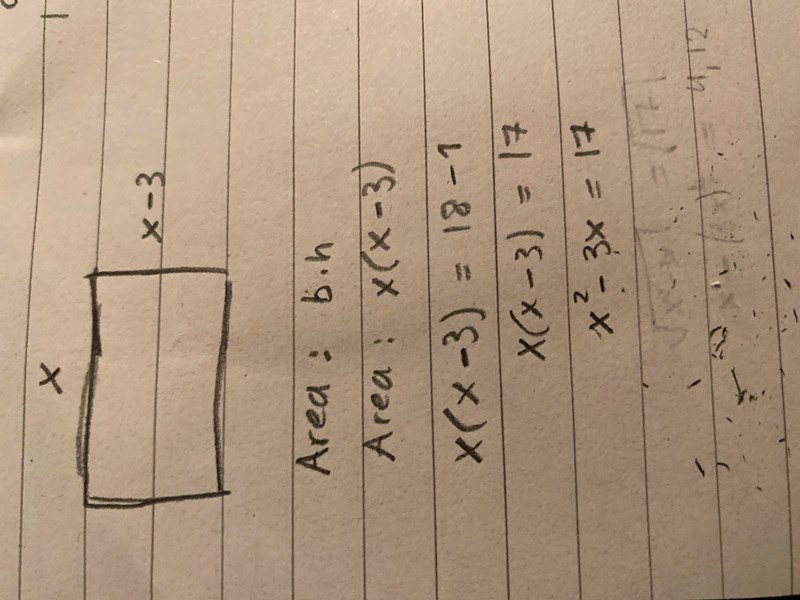 x
x-3
Area : b.h
Area : x(x-3)
x(x-3) = 18-1
x(x-3) = 17
x² - 3x = 17